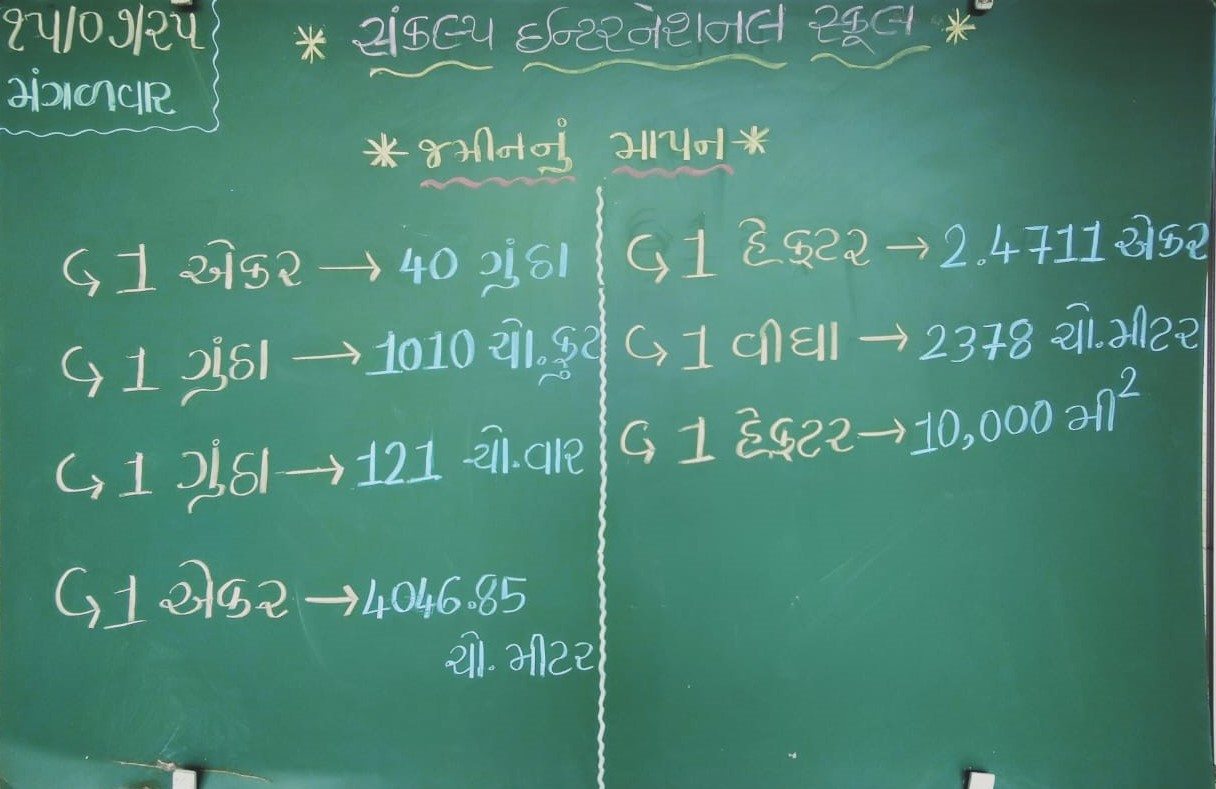 ૧૫/૦૭/૨૫
મંગળવાર
* સંકલ્પ ઈન્ટરનેશનલ સ્કૂલ *
* જમીનનું માપન *
↳ 1 એકર → 40 ગુંઠા
↳ 1 ગુંઠા → 1010 ચો.ફુટ
↳ 1 ગુંઠા → 121 ચો.વાર
↳ 1 એકર → 4046.85
ચો. મીટર
↳ 1 હેક્ટર → 2.4711 એકર
↳ 1 વીઘા → 2378 ચો.મીટર
↳ 1 હેક્ટર → 10,000 મી²